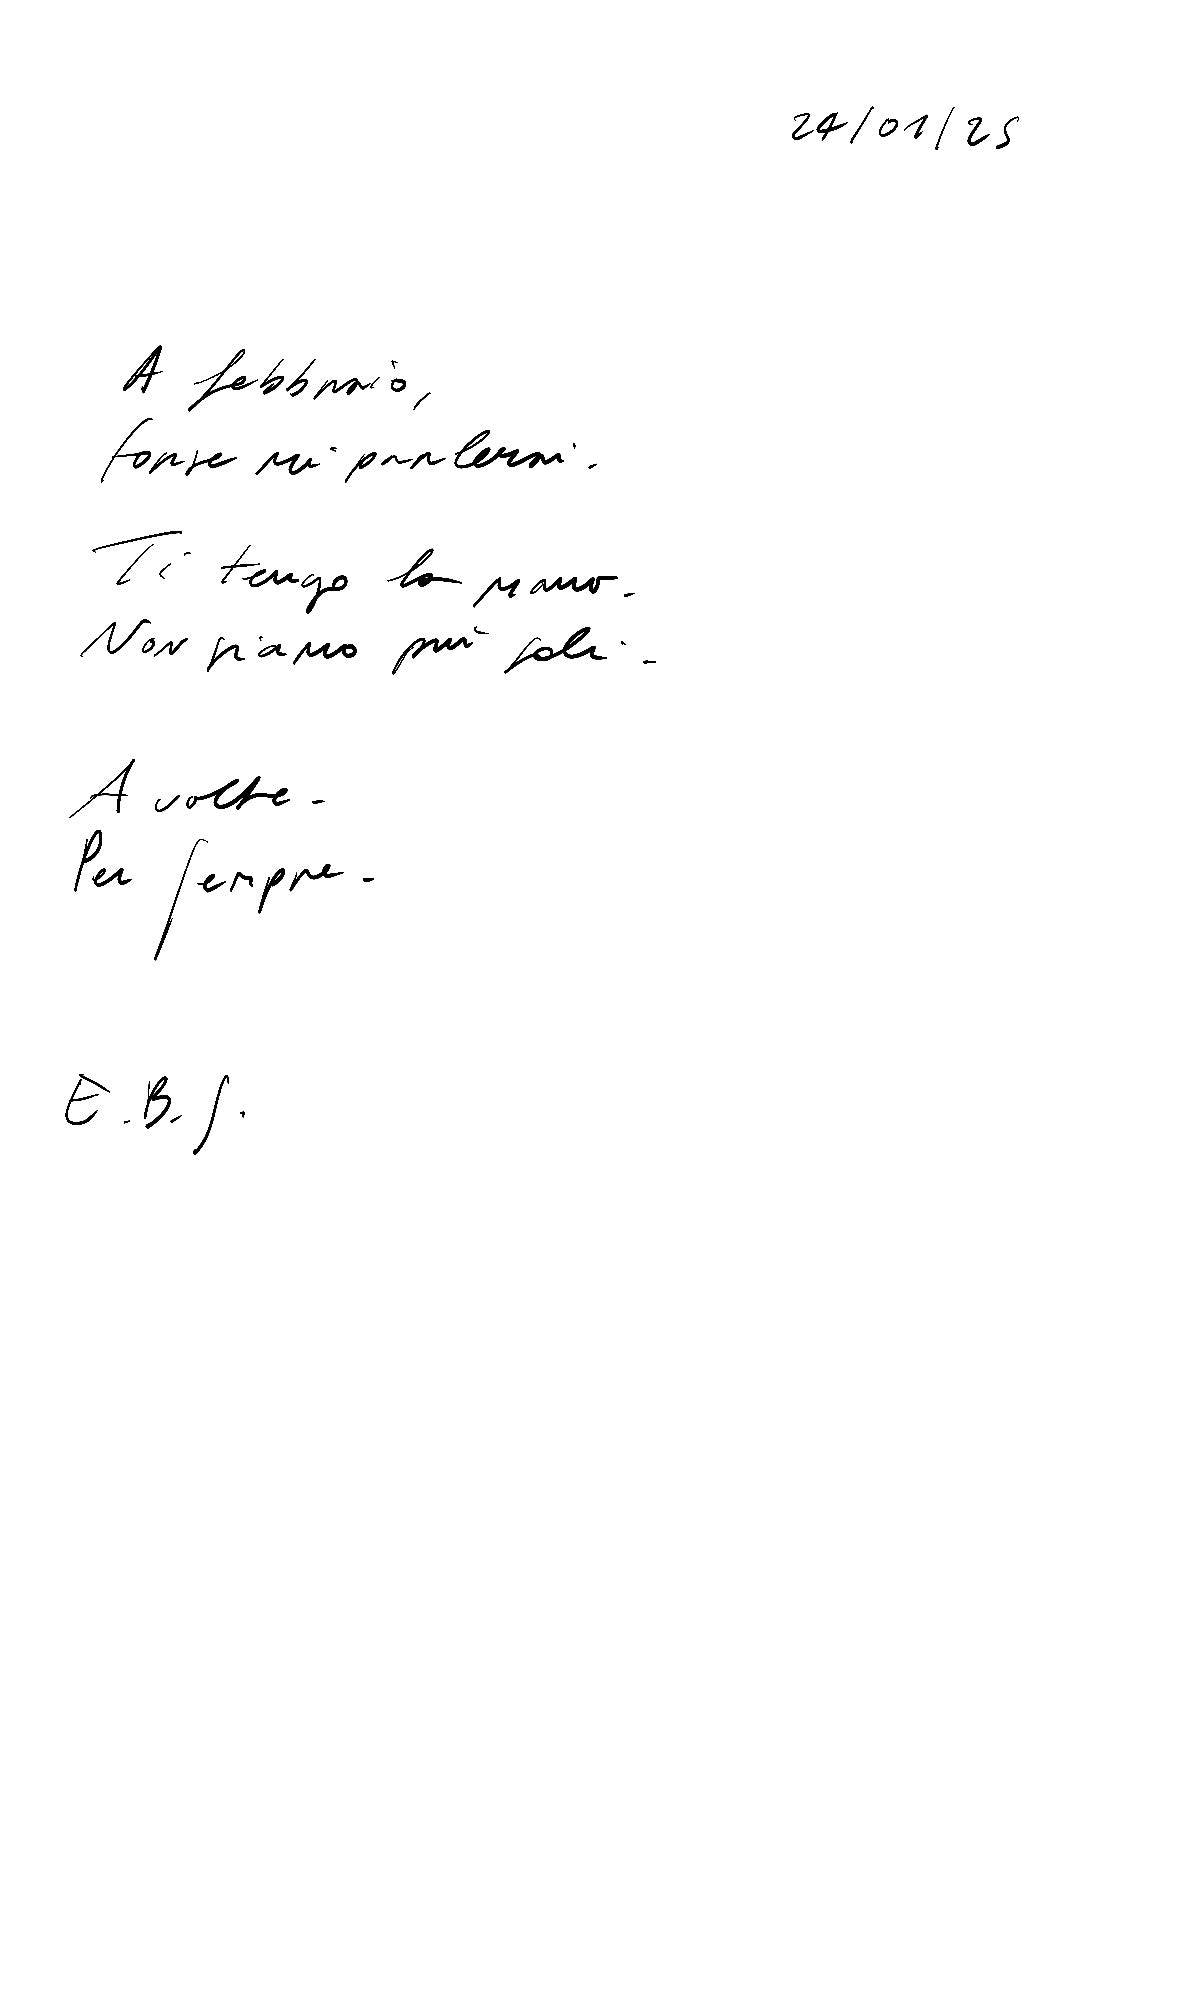 24/01/25
A febbraio,
forse mi parlerai.
Ti tengo la mano.
Non siamo più soli.
A volte.
Per sempre.
E.B.S.